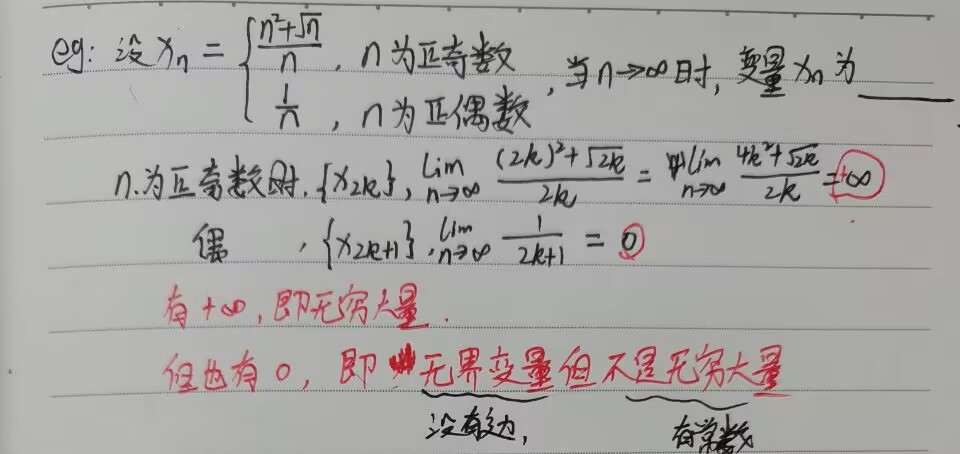 eg: 设 xₙ = { (n²+√n)/n , n 为正奇数
1/n , n 为正偶数 , 当 n→∞ 时, 变量 xₙ 为 ______
n.为正奇数时. {x₂ₖ}, lim n→∞ ((2k)²+√2k)/2k = lim n→∞ (4k²+√2k)/2k = +∞
偶 , {x₂ₖ₊₁}, lim n→∞ 1/(2k+1) = 0
有 +∞, 即无穷大量.
但也有 0, 即 无界变量但不是无穷大量
没有边, 有常数